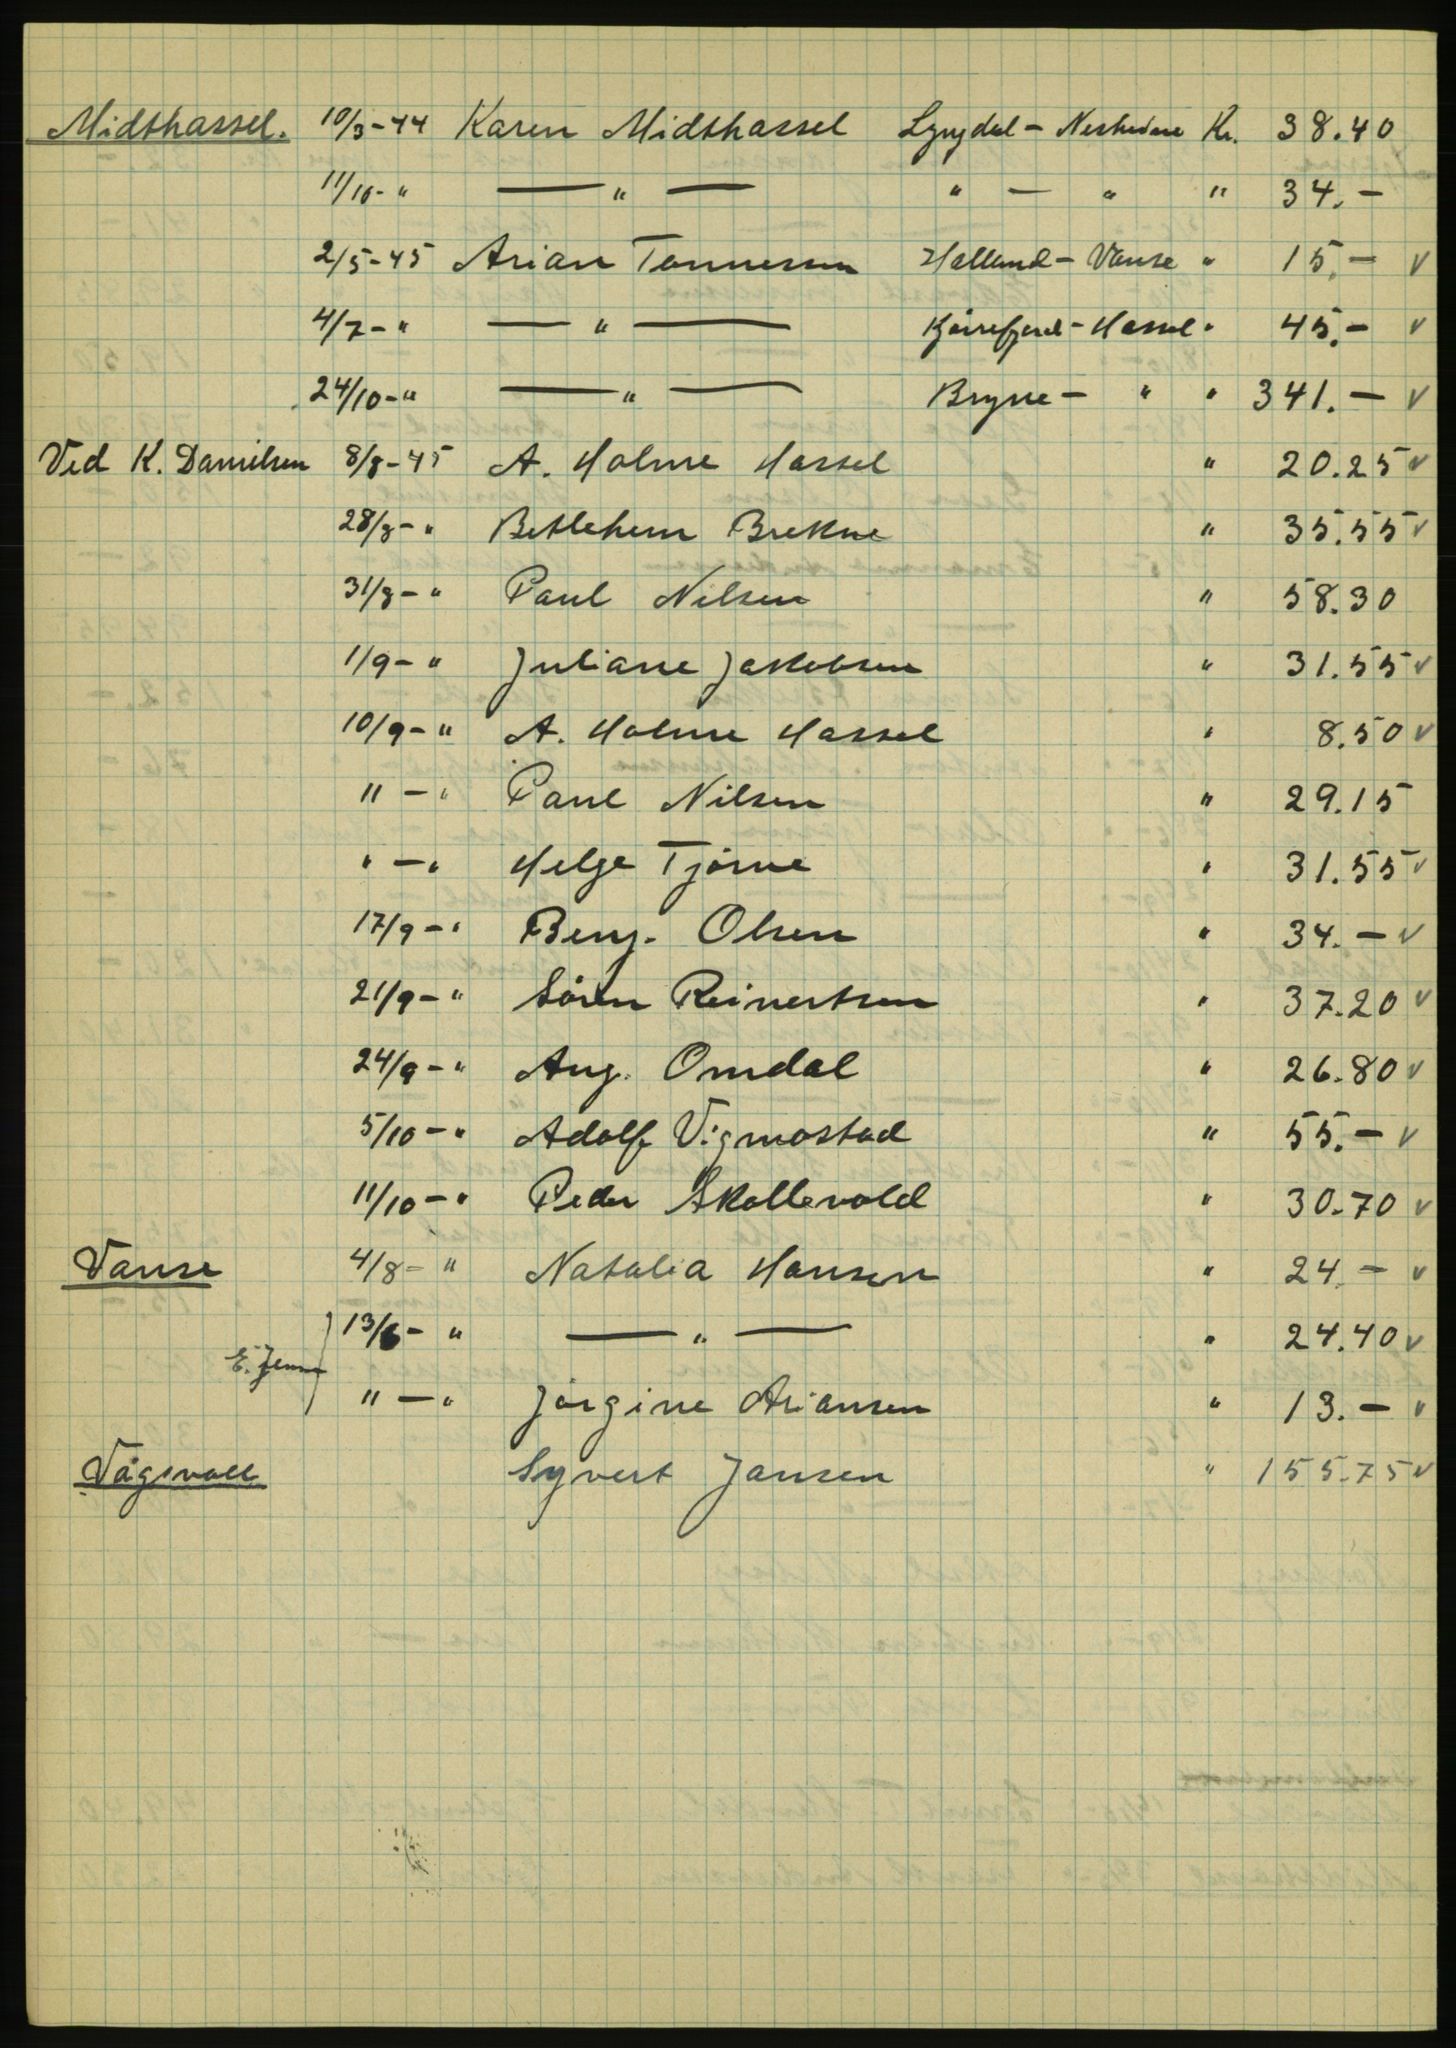 Midthassel. 10/3-44 Karen Midthassel Lyngdal - Kr. 38.40
11/10- " — " — " — " " 34.-
2/5-45 Arian Tønnessen Halland - Vanse " 15.- v
4/7- " — " — Kjørrefjord - Hassel " 45.- v
24/10- " — " — Bryne - " " 341.- v
Ved K. Danielsen 8/8-45 A. Holme Hassel " 20.25 v
28/8- " Betlehem Brekne " 35.55 v
31/8- " Paul Nilsen " 58.30
1/9- " Juliane Jakobsen " 31.55 v
10/9- " A. Holme Hassel " 8.50 v
" - " Paul Nilsen " 29.15
" - " Helge Tjørve " 31.55 v
17/9- " Benj. Olsen " 34.- v
21/9- " Sören Reinertsen " 37.20 v
24/9- " Aug. Omdal " 26.80 v
5/10- " Adolf Vigmostad " 55.- v
11/10- " Peder Skollevold " 30.70 v
Vanse 4/8- " Natalia Hansen " 24.- v
13/6- " — " — " 24.40 v
E. " - " Jørgine Ariansen " 13.- v
Vågsvoll Syvert Jansen " 155.75 v